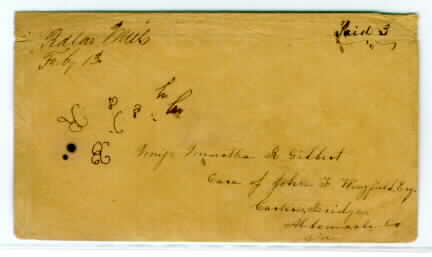 Paid 3
Mills
Feby 13
Miss Martha R Gilbert
Care of John F Wingfield, Esq.
Carters Bridge
Albemarle Co
Va